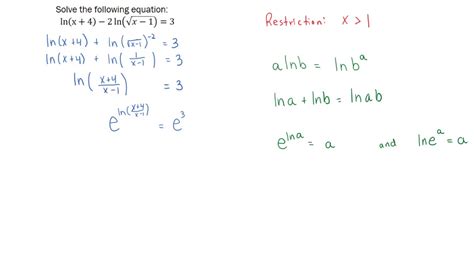 Solve the following equation:
ln(x + 4) − 2 ln(√x − 1) = 3
ln(x+4) + ln(√x-1)⁻² = 3
ln(x+4) + ln(1/x-1) = 3
ln(x+4/x-1) = 3
e^ln(x+4/x-1) = e³
Restriction: x > 1
a ln b = ln b^a
ln a + ln b = ln ab
e^ln a = a and ln e^a = a